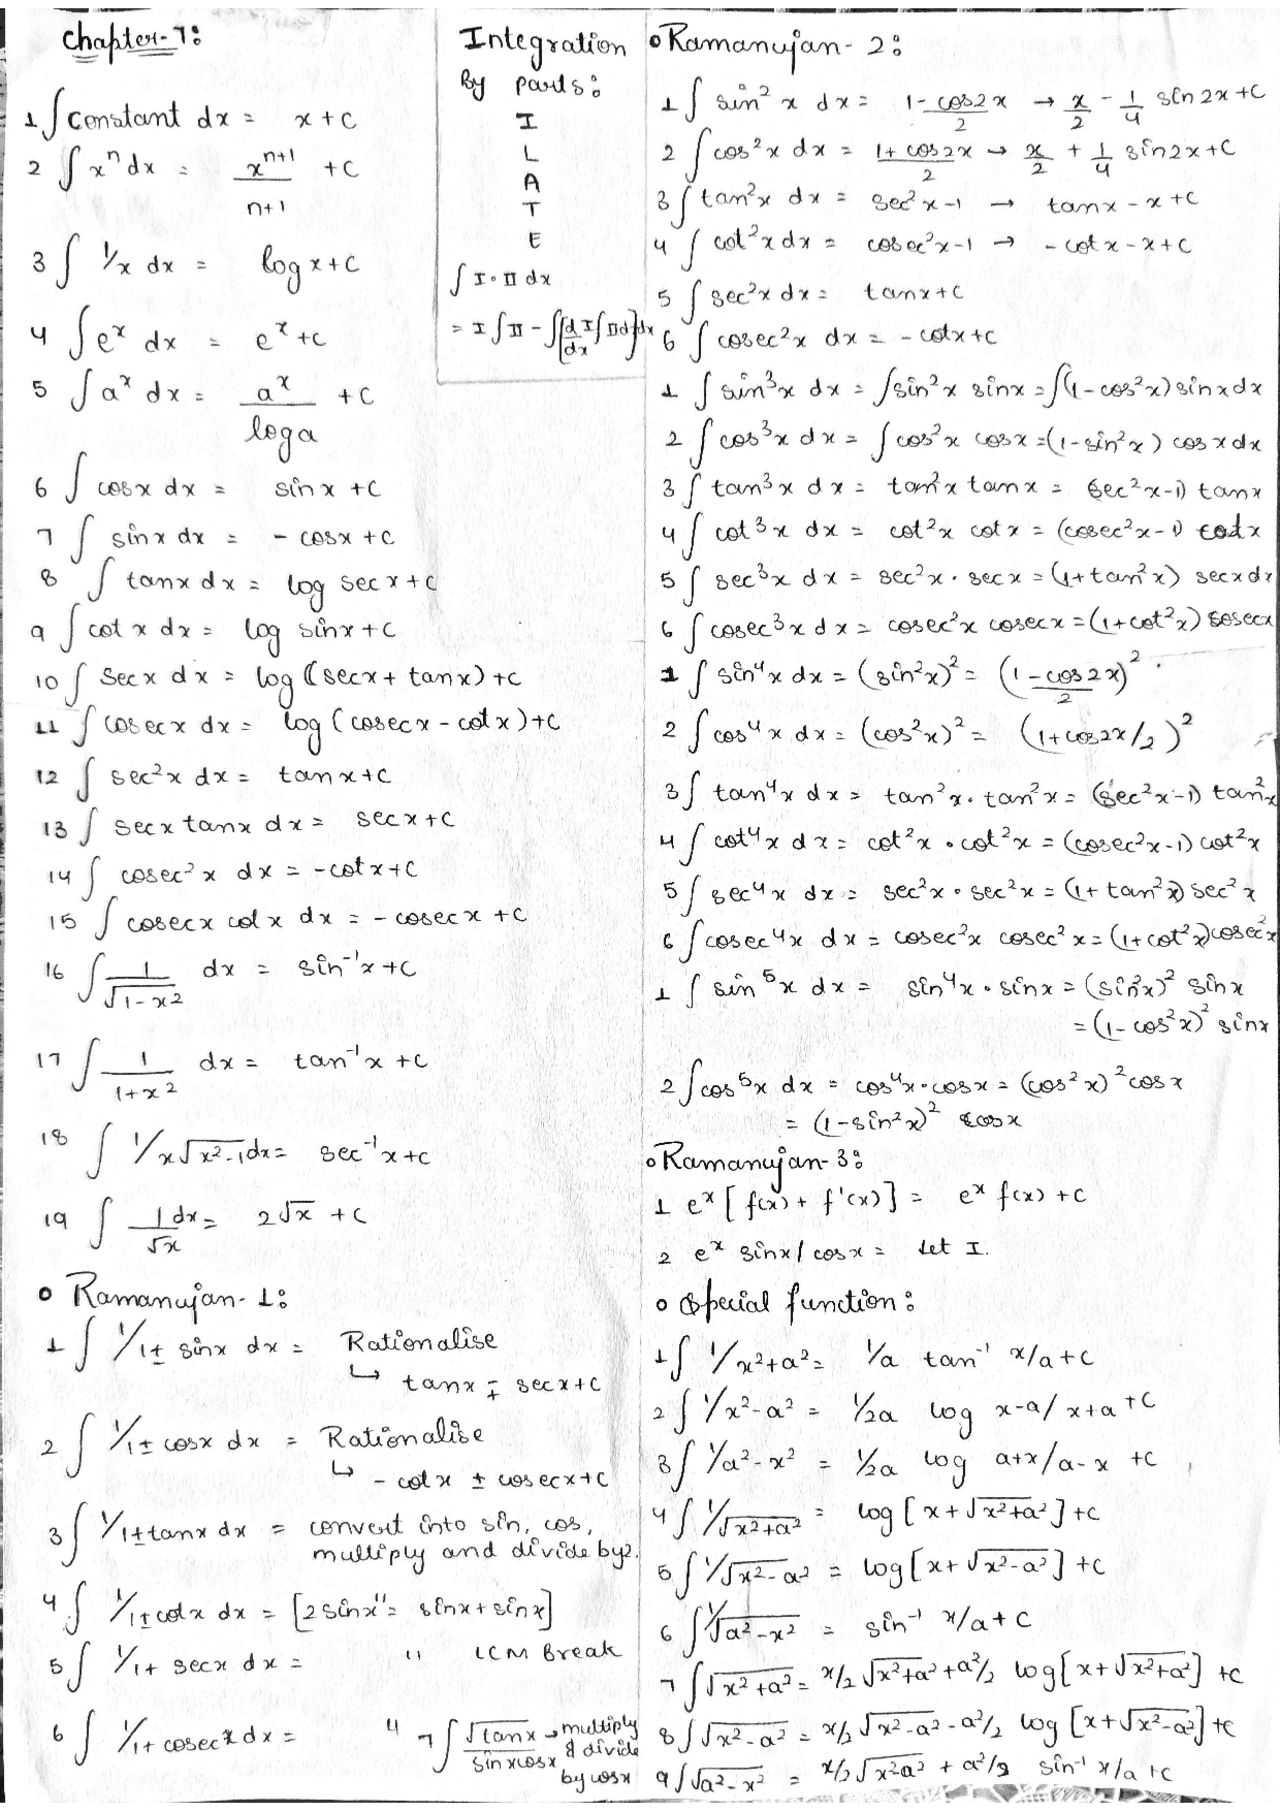 Chapter-7:
1 ∫ constant dx = x + c
2 ∫ xⁿ dx = xⁿ⁺¹/n+1 + c
3 ∫ 1/x dx = log x + c
4 ∫ eˣ dx = eˣ + c
5 ∫ aˣ dx = aˣ/log a + c
6 ∫ cosx dx = sinx + c
7 ∫ sinx dx = - cosx + c
8 ∫ tanx dx = log secx + c
9 ∫ cot x dx = log sinx + c
10 ∫ Sec x dx = log (secx + tanx) + c
11 ∫ cosec x dx = log (cosecx - cotx) + c
12 ∫ sec²x dx = tanx + c
13 ∫ secx tanx dx = secx + c
14 ∫ cosec²x dx = -cotx + c
15 ∫ cosecx cotx dx = - cosecx + c
16 ∫ 1/√1-x² dx = sin⁻¹x + c
17 ∫ 1/1+x² dx = tan⁻¹x + c
18 ∫ 1/x√x²-1 dx = sec⁻¹x + c
19 ∫ 1/√x dx = 2√x + c
o Ramanujan-1:
1 ∫ 1/1± sinx dx = Rationalise
↳ tanx ∓ secx + c
2 ∫ 1/1± cosx dx = Rationalise
↳ - cotx ± cosecx + c
3 ∫ 1/1±tanx dx = convert into sin, cos,
multiply and divide by 2.
4 ∫ 1/1±cotx dx = [2sinx" = sinx + sinx]
5 ∫ 1/1+ secx dx = " LCM Break
6 ∫ 1/1+ cosecx dx = "
7 ∫ √tanx/sinxcosx → multiply
& divide
by cosx
Integration
By parts:
I
L
A
T
E
∫ I・II dx
= I ∫ II - ∫[d/dx I ∫ II dx]dx
o Ramanujan-2:
1 ∫ sin²x dx = 1-cos2x/2 → x/2 - 1/4 sin2x + c
2 ∫ cos²x dx = 1+cos2x/2 → x/2 + 1/4 sin2x + c
3 ∫ tan²x dx = sec²x-1 → tanx - x + c
4 ∫ cot²x dx = cosec²x-1 → -cotx - x + c
5 ∫ sec²x dx = tanx + c
6 ∫ cosec²x dx = - cotx + c
1 ∫ sin³x dx = ∫ sin²x sinx = ∫(1-cos²x) sinx dx
2 ∫ cos³x dx = ∫ cos²x cosx = (1-sin²x) cosx dx
3 ∫ tan³x dx = tan²x tanx = (sec²x-1) tanx
4 ∫ cot³x dx = cot²x cotx = (cosec²x-1) cotx
5 ∫ sec³x dx = sec²x・secx = (1+tan²x) secx dx
6 ∫ cosec³x dx = cosec²x cosecx = (1+cot²x) cosecx
1 ∫ sin⁴x dx = (sin²x)² = (1-cos2x/2)²
2 ∫ cos⁴x dx = (cos²x)² = (1+cos2x/2)²
3 ∫ tan⁴x dx = tan²x・tan²x = (sec²x-1) tan²x
4 ∫ cot⁴x dx = cot²x・cot²x = (cosec²x-1) cot²x
5 ∫ sec⁴x dx = sec²x・sec²x = (1+tan²x) sec²x
6 ∫ cosec⁴x dx = cosec²x cosec²x = (1+cot²x) cosec²x
1 ∫ sin⁵x dx = sin⁴x・sinx = (sin²x)² sinx
= (1-cos²x)² sinx
2 ∫ cos⁵x dx = cos⁴x・cosx = (cos²x)² cosx
= (1-sin²x)² cosx
o Ramanujan-3:
1 eˣ [f(x) + f'(x)] = eˣ f(x) + c
2 eˣ sinx/cosx = let I.
o Special function:
1 ∫ 1/x²+a² = 1/a tan⁻¹ x/a + c
2 ∫ 1/x²-a² = 1/2a log x-a/x+a + c
3 ∫ 1/a²-x² = 1/2a log a+x/a-x + c
4 ∫ 1/√x²+a² = log [x + √x²+a²] + c
5 ∫ 1/√x²-a² = log [x + √x²-a²] + c
6 ∫ 1/√a²-x² = sin⁻¹ x/a + c
7 ∫ √x²+a² = x/2 √x²+a² + a²/2 log [x + √x²+a²] + c
8 ∫ √x²-a² = x/2 √x²-a² - a²/2 log [x + √x²-a²] + c
9 ∫ √a²-x² = x/2 √x²a² + a²/2 sin⁻¹ x/a + c